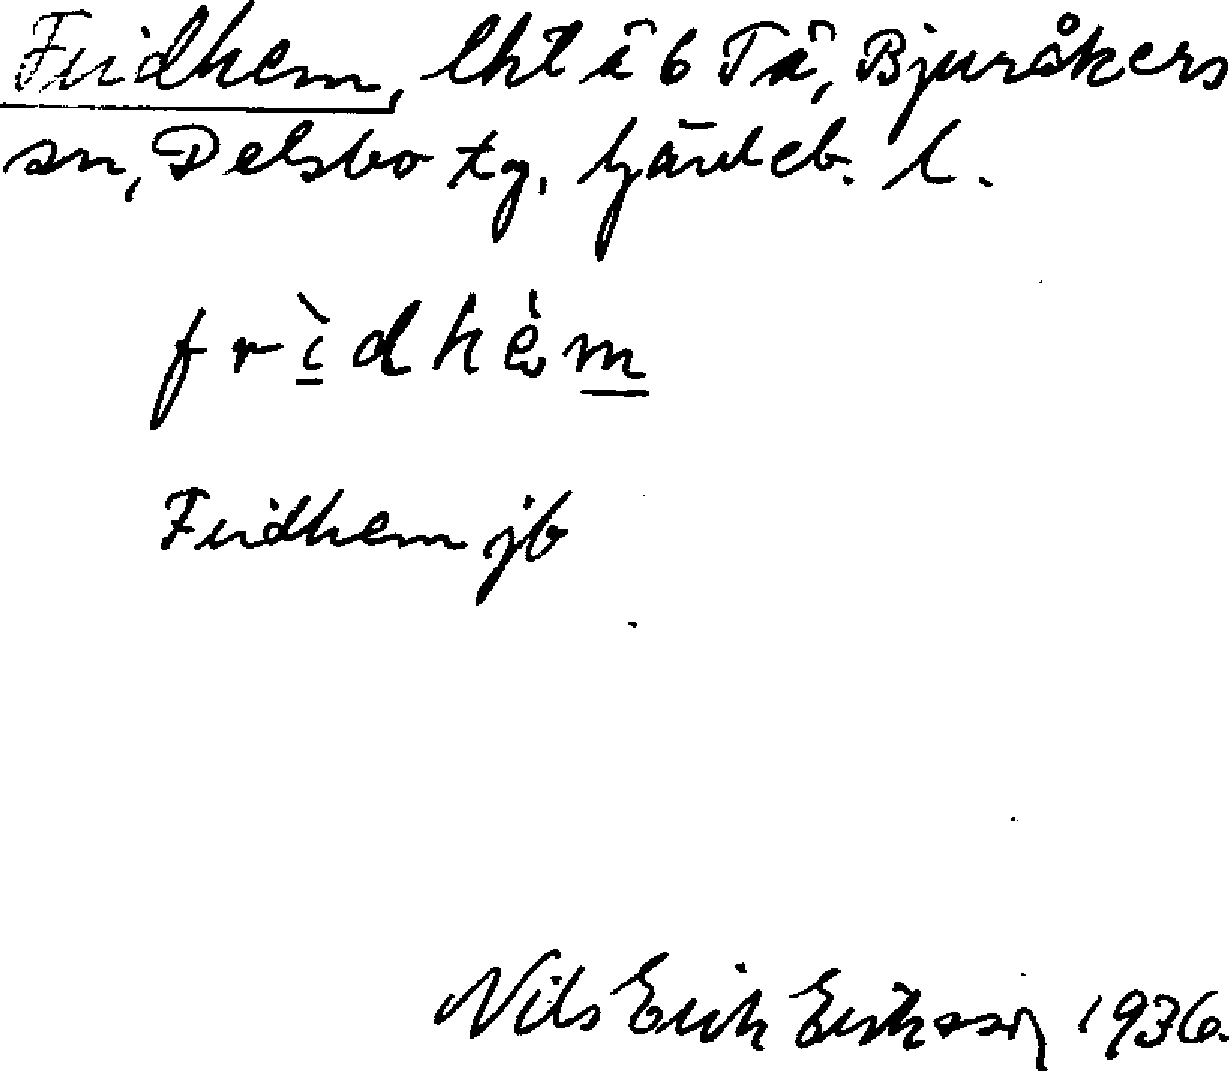 Fridhem, lht å 6 Tå, Bjuråkers
sn, Delsbo tg, Gävleb. l.
frìdhèm
Fridhem jb
Nils Erik Eriksson 1936.